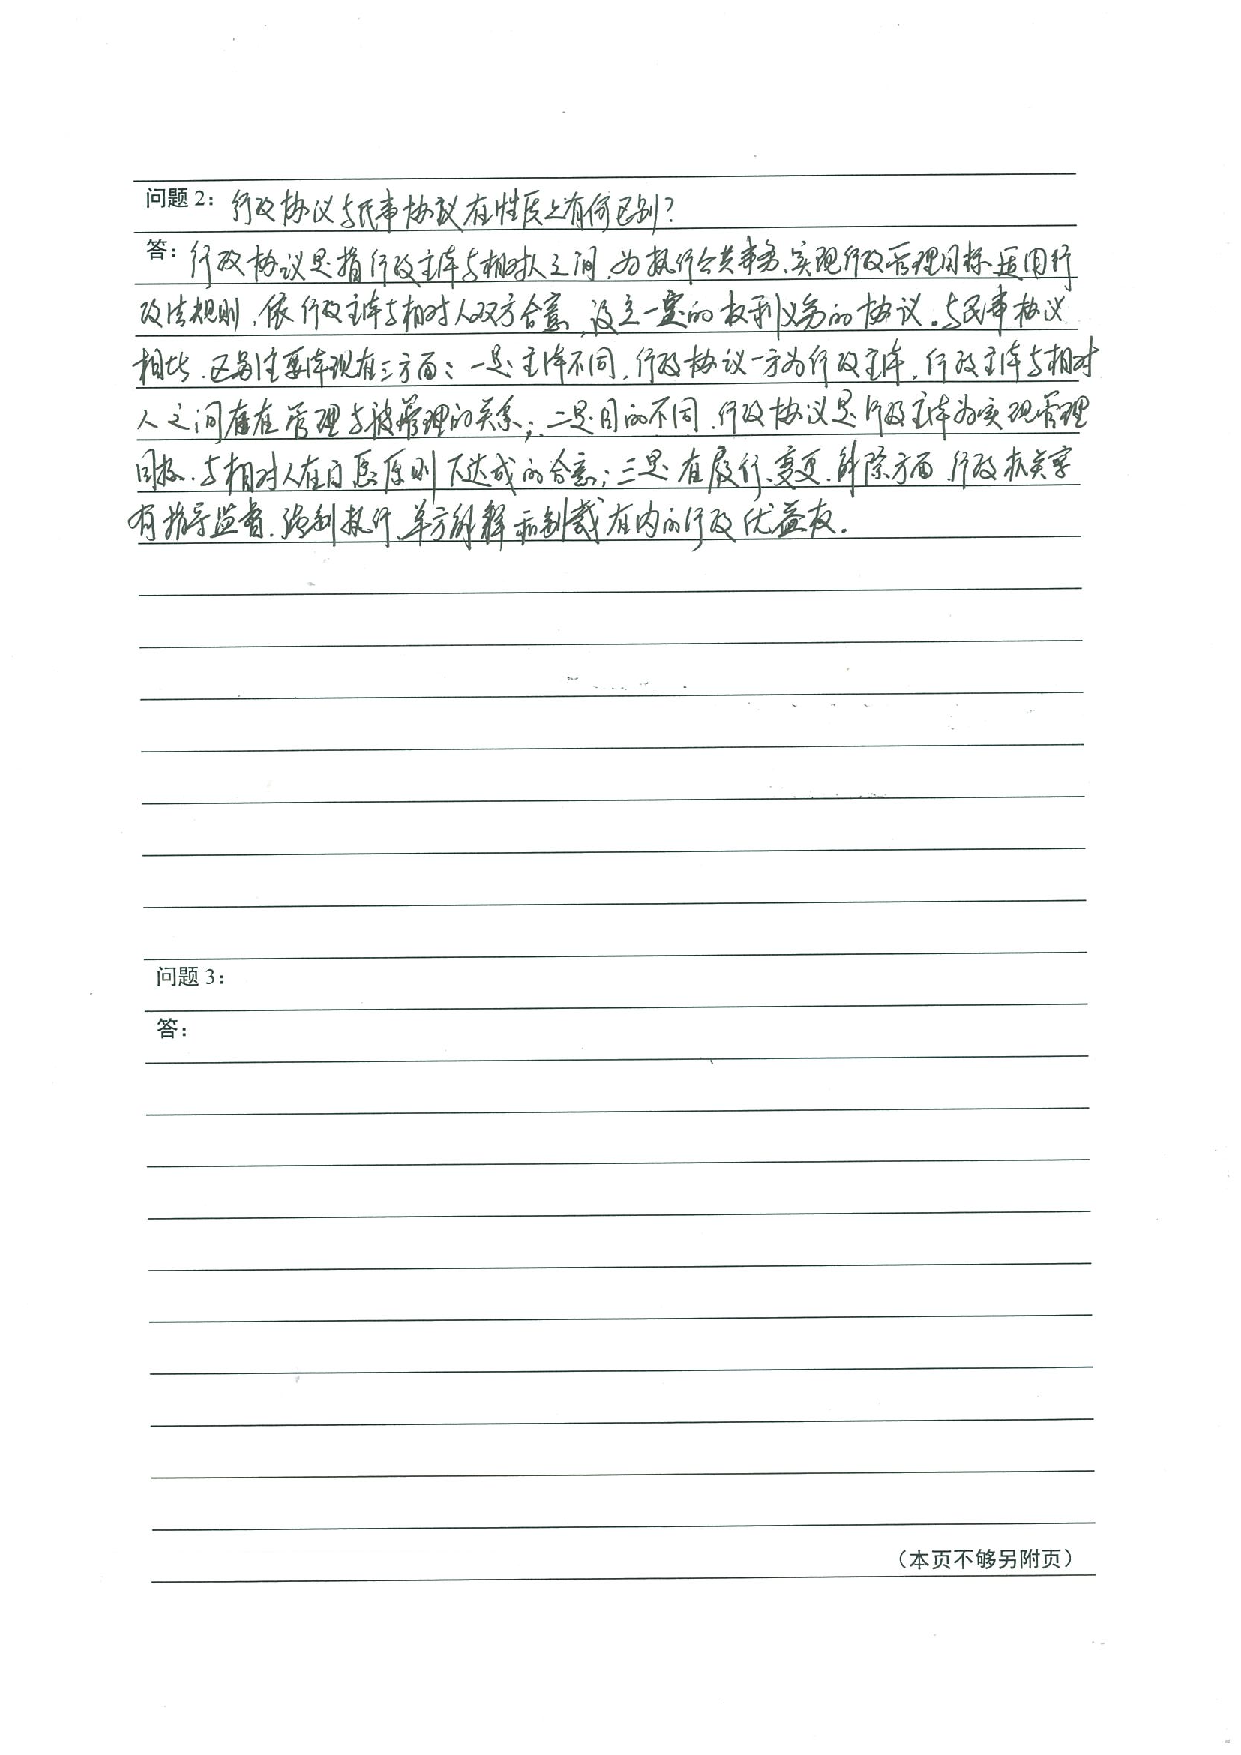 问题2：行政协议与民事协议在性质上有何区别？
答：行政协议是指行政主体与相对人之间，为执行公共事务、实现行政管理目标，适用行
政法规则，依行政主体与相对人双方合意，设立一定的权利义务的协议。与民事协议
相比，区别主要体现在三方面：一是主体不同，行政协议一方为行政主体，行政主体与相对
人之间存在管理与被管理的关系；二是目的不同，行政协议是行政主体为实现管理
目标，与相对人在自愿原则下达成的合意；三是在履行、变更、解除方面，行政机关享
有指导监督、强制执行、单方解释和制裁在内的行政优益权。
问题3：
答：
（本页不够另附页）